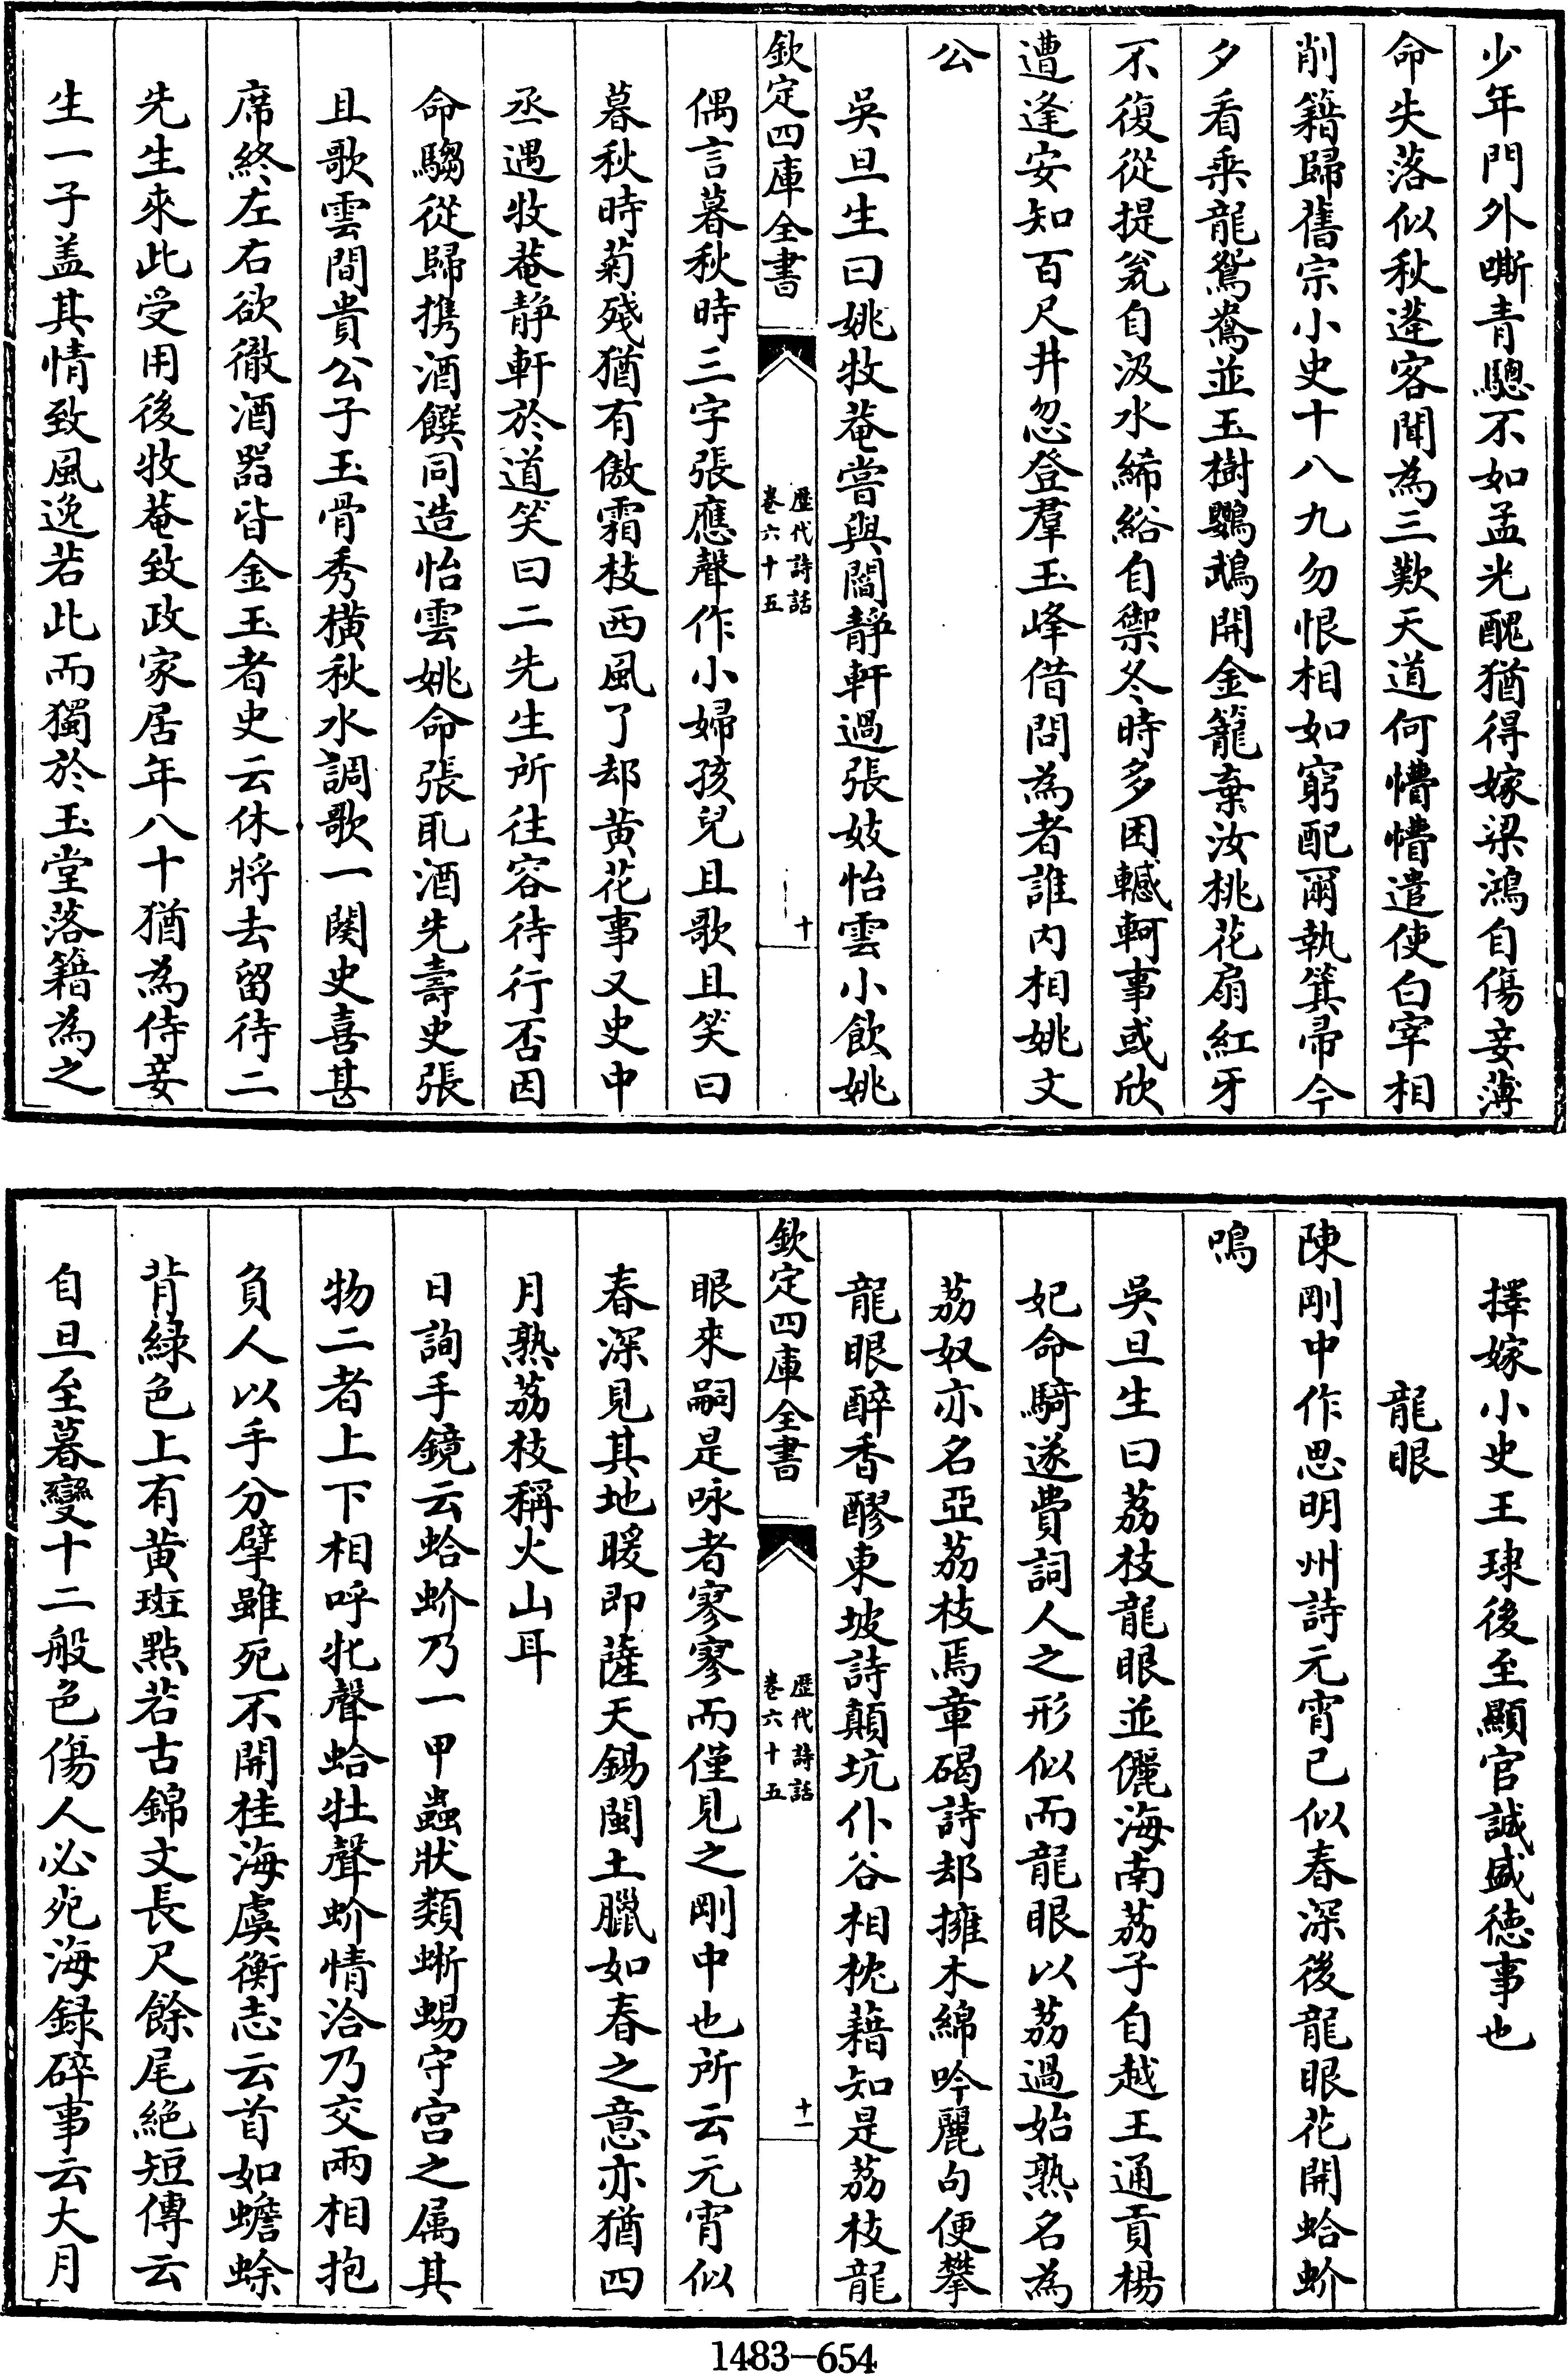 少年門外嘶青驄不如孟光醜猶得嫁梁鴻自傷妾薄
命失落似秋蓬客聞為三歎天道何懵懵遣使白宰相
削籍歸舊宗小史十八九勿恨相如窮配爾執箕帚今
夕看乗龍鴛鴦並玉樹鸚鵡開金籠棄汝桃花扇紅牙
不復從提瓮自汲水絺綌自禦冬時多困轗軻事或欣
遭逢安知百尺井忽登羣玉峰借問為者誰内相姚文
公
吳旦生曰姚牧菴嘗與閻靜軒過張妓怡雲小飲姚
欽定四庫全書
歴代詩話
卷六十五
十
偶言暮秋時三字張應聲作小婦孩兒且歌且笑曰
暮秋時菊殘猶有傲霜枝西風了却黄花事又史中
丞遇牧菴靜軒於道笑曰二先生所往容待行否因
命騶從歸携酒饌同造怡雲姚命張取酒先壽史張
且歌雲間貴公子玉骨秀横秋水調歌一闋史喜甚
席終左右欲徹酒器皆金玉者史云休將去留待二
先生來此受用後牧菴致政家居年八十猶為侍妾
生一子盖其情致風逸若此而獨於玉堂落籍為之
擇嫁小史王㻖後至顯官誠盛徳事也
龍眼
陳剛中作思明州詩元宵已似春深後龍眼花開蛤蚧
鳴
吳旦生曰荔枝龍眼並儷海南荔子自越王通貢楊
妃命騎遂費詞人之形似而龍眼以荔過始熟名為
荔奴亦名亞荔枝焉章碣詩却擁木綿吟麗句便攀
龍眼醉香醪東坡詩顛坑仆谷相枕藉知是荔枝龍
欽定四庫全書
歴代詩話
卷六十五
十一
眼來嗣是咏者寥寥而僅見之剛中也所云元宵似
春深見其地暖即薩天錫閩土臘如春之意亦猶四
月熟荔枝稱火山耳
日詢手鏡云蛤蚧乃一甲蟲狀類蜥蜴守宫之属其
物二者上下相呼牝聲蛤牡聲蚧情洽乃交兩相抱
負人以手分擘雖死不開桂海虞衡志云首如蟾蜍
背綠色上有黄斑點若古錦文長尺餘尾絶短傳云
自旦至暮變十二般色傷人必死海録碎事云大月
1483-654